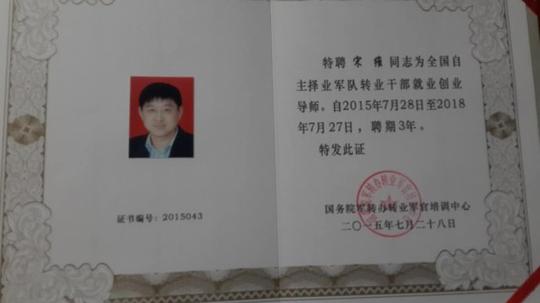 特聘 宋雍 同志为全国自
主择业军队转业干部就业创业
导师。自2015年7月28日至2018
年7月27日，聘期3年。
特发此证
证书编号：2015043
国务院军转办转业军官培训中心
二〇一五年七月二十八日